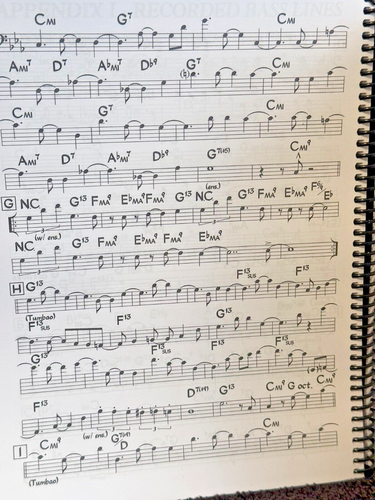 APPENDIX I - RECORDED BASS LINES
CMI G7 CMI
AMI7 D7 AbMI7 Db9 G7 CMI
CMI G7 CMI
AMI7 D7 AbMI7 Db9 G7(#5) CMI9
G NC G13 FMA9 EbMA9 FMA9 G13 NC G13 FMA9 EbMA9 F5/G Eb
(w/ ens.) (ens.)
NC G13 FMA9 EbMA9 FMA9 EbMA9
H G13 F13SUS F13
(Tumbao)
F13SUS F13 G13
G13 F13SUS F13 F13SUS
F13 D7(#9) G13 CMI9 G oct. CMI9
(w/ ens.)
I CMI9 G7(#5)/D CMI
(Tumbao)